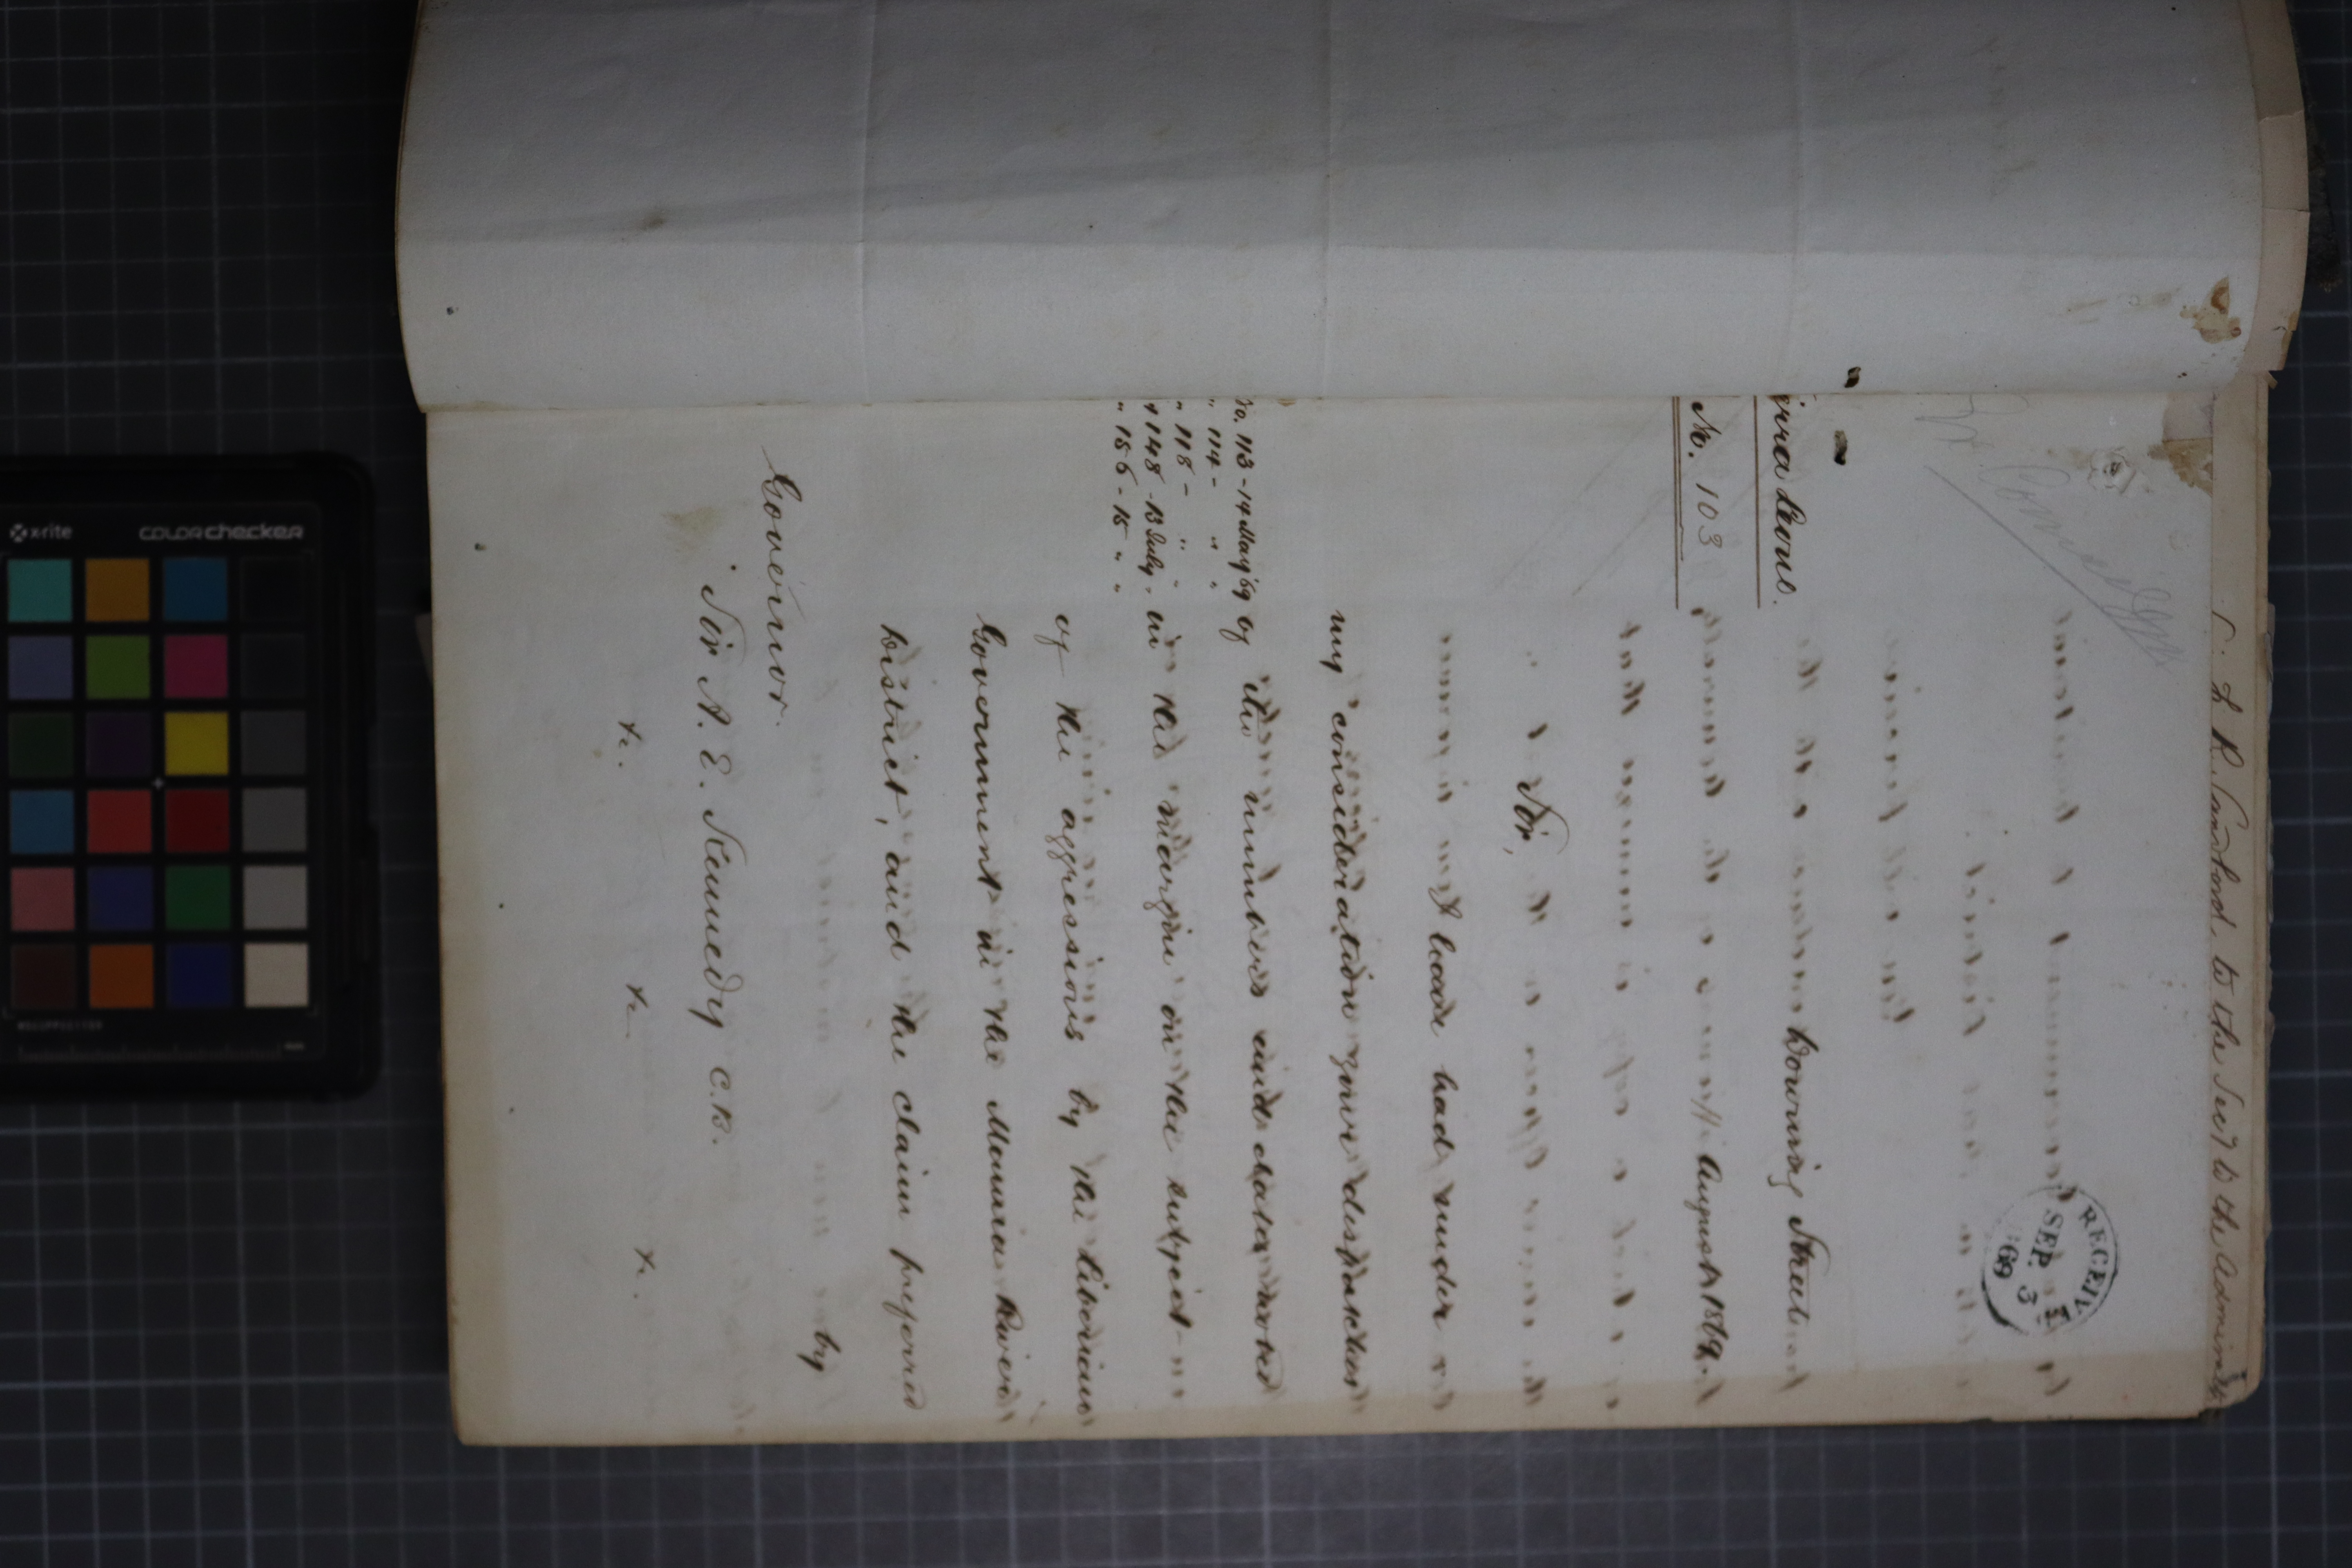 C. L R. Sandford, to the Secy to the Admiralty
RECEIVED
SEP. 3
69
Sierra Leone.
No. 103
Downing Street
August 1869.
Sir,
I have had under
my consideration your despatches
No. 113-14 May '69
" 114- " "
" 118- " "
" 148-13 July "
" 156-15 " "
of the numbers and dates noted
in the margin on the subject
of the aggressions by the Liberian
Government in the Mannа River
District, and the claim preferred
by
Governor
Sir A. E. Kennedy C.B.
&c. &c. &c.